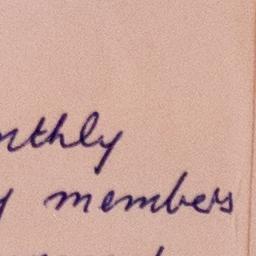 nthly
y members